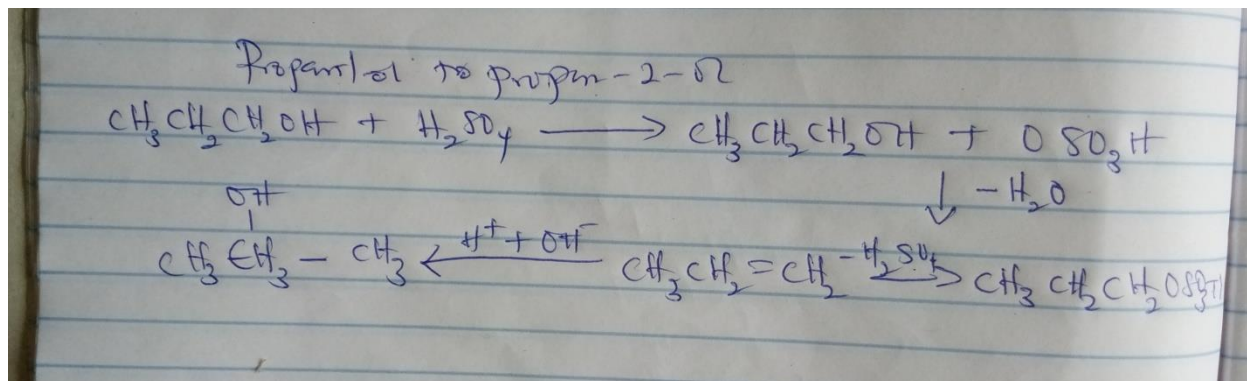 Propanlol to propan-2-ol
CH₃CH₂CH₂OH + H₂SO₄ ⟶ CH₃CH₂CH₂OH + OSO₃H
↓ -H₂O
OH
|
CH₃CH₃ - CH₃ ⟵ H⁺ + OH⁻ CH₃CH₂=CH₂ -H₂SO₄ ⟶ CH₃CH₂CH₂OSO₃H